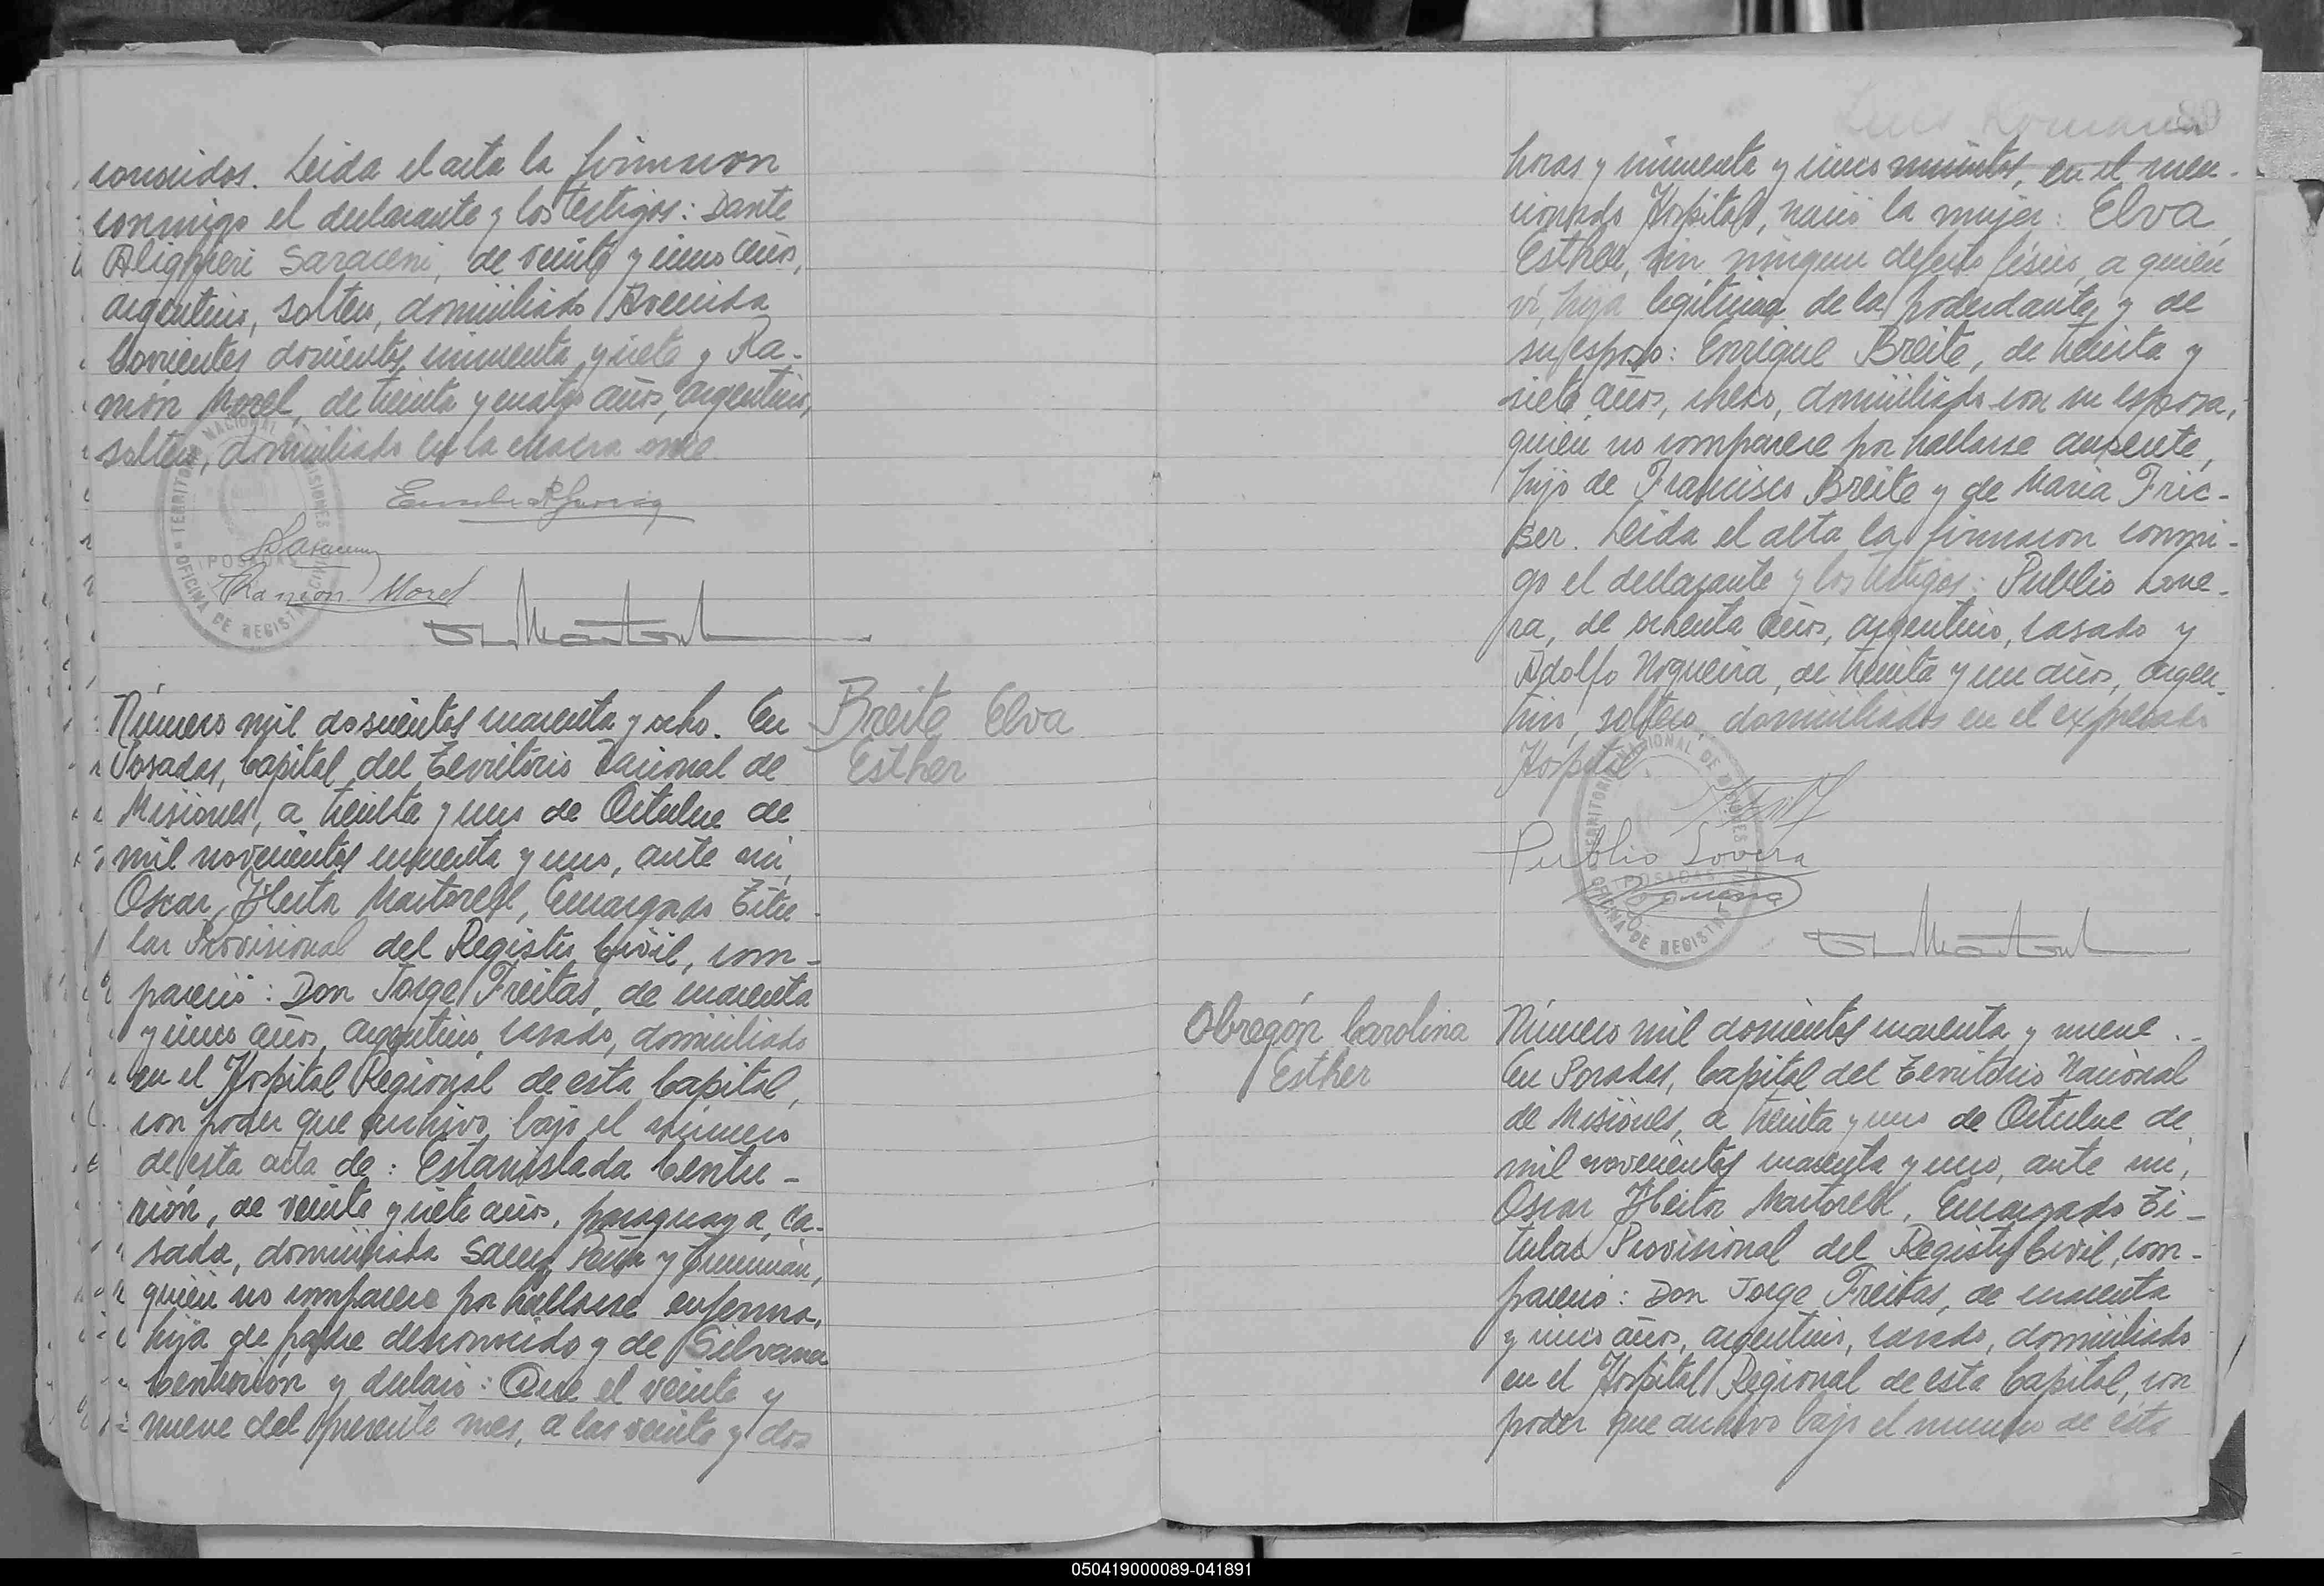 conocidos. Leída el acta la firmaron
conmigo el declarante y los testigos: Dante
Alighieri Saraceni, de veinte y cinco años,
argentino, soltero, domiciliado Avenida
Corrientes doscientos cincuenta y siete y Ra-
món Morel, de treinta y cuatro años, argentino,
soltero, domiciliado en la chacra once.
TERRITORIO NACIONAL DE MISIONES
POSADAS
OFICINA DE REGISTRO CIVIL
Ramón Morel
Número mil doscientos cuarenta y ocho. En
Posadas, Capital del Territorio Nacional de
Misiones, a treinta y uno de Octubre de
mil novecientos cuarenta y uno, ante mi,
Oscar Héctor Martorell, Encargado Titu-
lar Provisional del Registro Civil, com-
pareció: Don Jorge Freitas, de cuarenta
y cinco años, argentino, casado, domiciliado
en el Hospital Regional de esta Capital,
con poder que archivo bajo el número
de esta acta de: Estanislada Centu-
rión, de veinte y siete años, paraguaya, ca-
sada, domiciliada Saenz Peña y Tucumán,
quien no comparece por hallarse enferma,
hija de padre desconocido y de Silvana
Centurión y declaró: Que el veinte y
nueve del presente mes, a las veinte y dos
Breite Elva
Esther
89
horas y cincuenta y cinco minutos, en el men-
cionado Hospital, nació la mujer: Elva
Esther, sin ningun defecto físico, a quién
ví, hija legítima de la poderdante y de
su esposo: Enrique Breite, de treinta y
siete años, checo, domiciliado con su esposa,
quien no comparece por hallarse ausente,
hijo de Francisco Breite y de María Fric-
ser. Leída el acta la firmaron conmi-
go el declarante y los testigos: Publio Love-
ra, de ochenta años, argentino, casado y
Adolfo Nogueira, de treinta y un años, argen-
tino, soltero, domiciliados en el expresado
Hospital
TERRITORIO NACIONAL DE MISIONES
POSADAS
OFICINA DE REGISTRO
Publio Lovera
Obregón Carolina
Esther
Número mil doscientos cuarenta y nueve.-
En Posadas, Capital del Territorio Nacional
de Misiones, a treinta y uno de Octubre de
mil novecientos cuarenta y uno, ante mi,
Oscar Héctor Martorell, Encargado Ti-
tular Provisional del Registro Civil, com-
pareció: Don Jorge Freitas, de cuarenta
y cinco años, argentino, casado, domiciliado
en el Hospital Regional de esta Capital, con
poder que archivo bajo el numero de esta
050419000089-041891